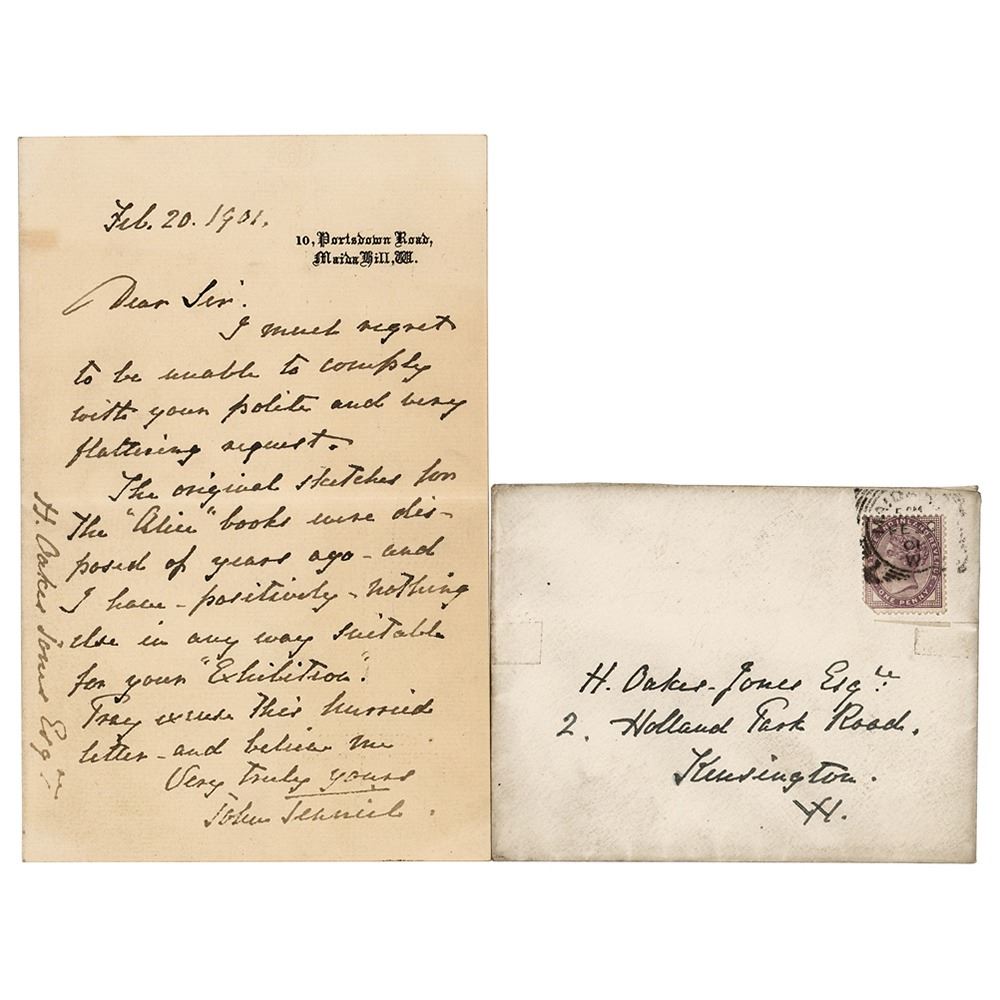 Feb. 20. 1901.
10, Portsdown Road,
Maida Hill, W.
Dear Sir.
I much regret
to be unable to comply
with your polite and very
flattering request.
The original sketches for
the "Alice" books were dis-
posed of years ago - and
I have - positively - nothing
else in any way suitable
for your "Exhibition".
Pray excuse this hurried
letter - and believe me
Very truly yours
John Tenniel.
H. Oakes Jones Esqre
AND INLAND REVENUE
ONE PENNY
01
W
H. Oakes-Jones Esqre
2. Holland Park Road.
Kensington.
W.